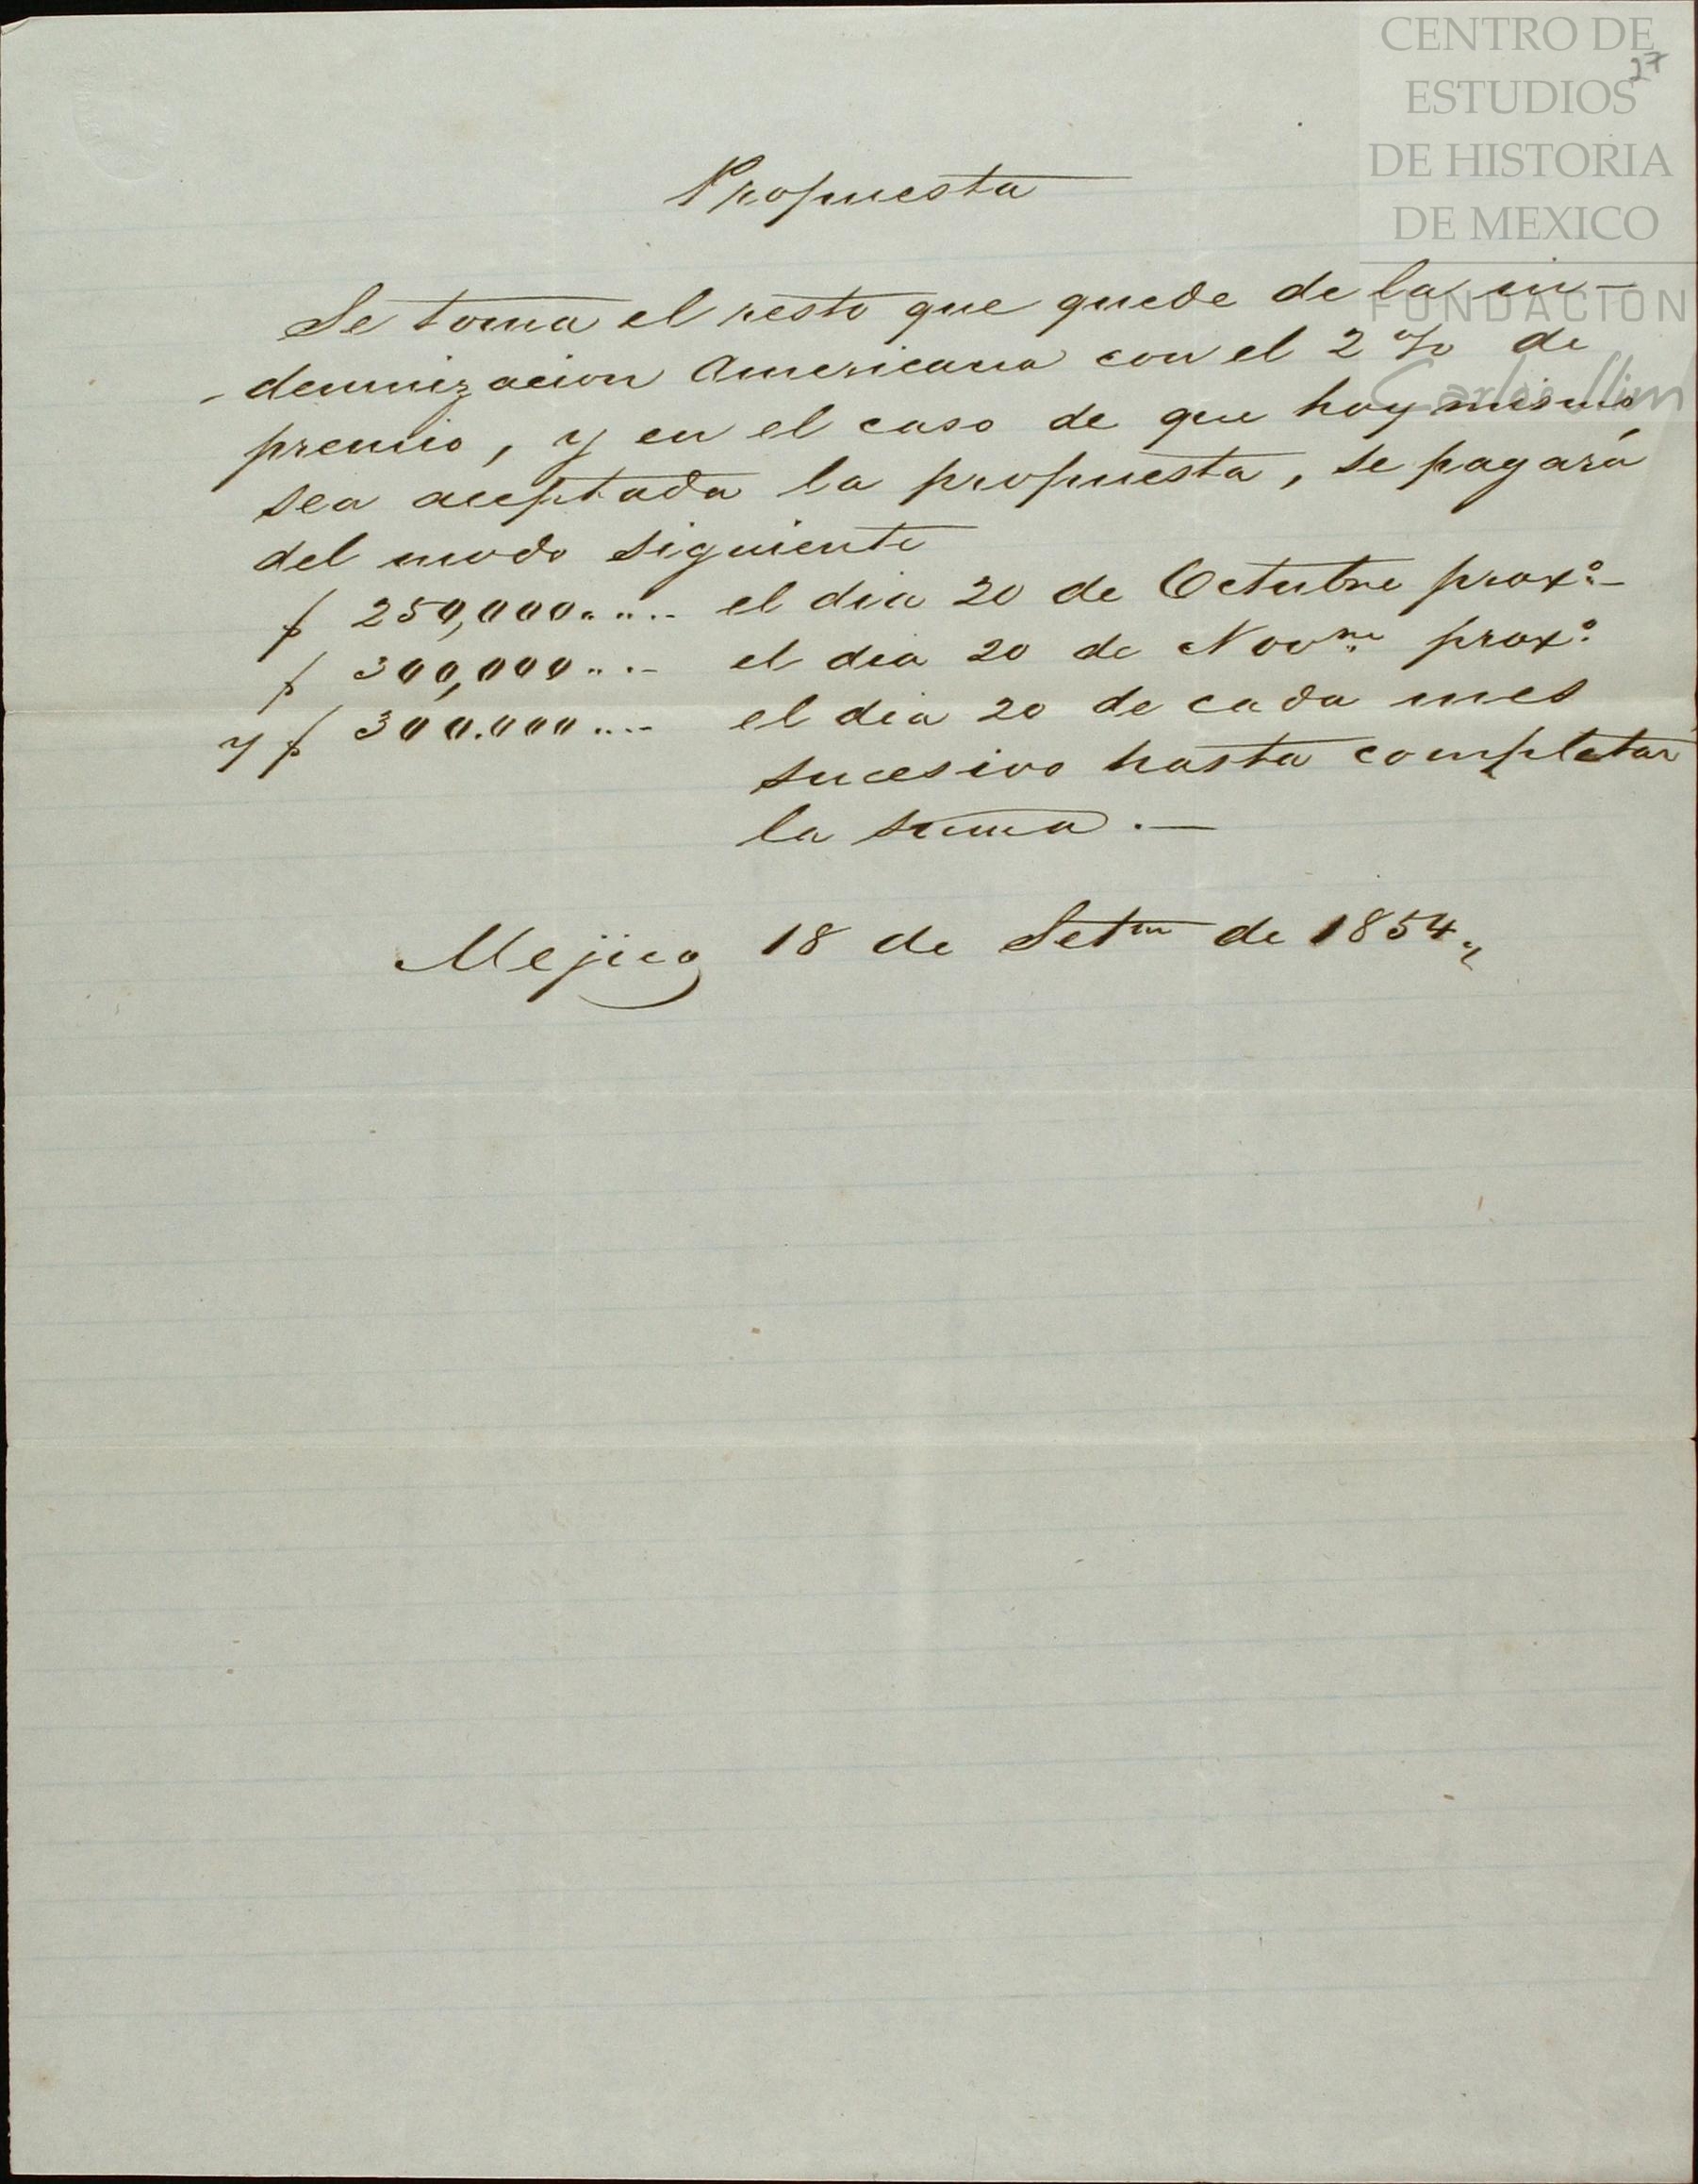 CENTRO DE
ESTUDIOS
DE HISTORIA
DE MEXICO
FUNDACION
Carlos Slim
27
Propuesta
Se toma el resto que quede de la in-
-demnizacion Americana con el 2 % de
premio, y en el caso de que hoy mismo
sea aceptada la propuesta, se pagará
del modo siguiente
$ 250,000..... el dia 20 de Octubre proxº
$ 300,000.... el dia 20 de Novre proxº
y $ 300.000.... el dia 20 de cada mes
sucesivo hasta completar
la suma.—
Mejico 18 de Setre de 1854